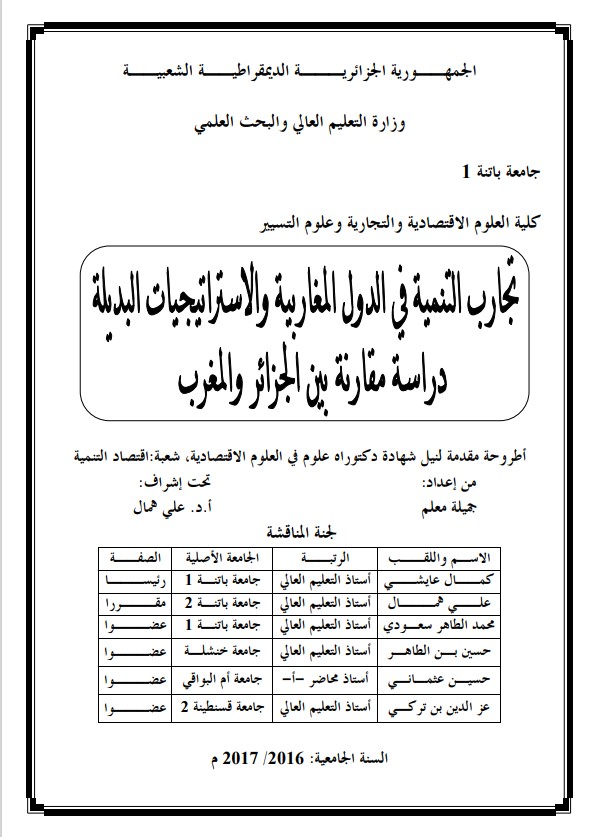 الجمهورية الجزائرية الديمقراطية الشعبية
وزارة التعليم العالي والبحث العلمي
جامعة باتنة 1
كلية العلوم الاقتصادية والتجارية وعلوم التسيير
تجارب التنمية في الدول المغاربية والاستراتيجيات البديلة
دراسة مقارنة بين الجزائر والمغرب
أطروحة مقدمة لنيل شهادة دكتوراه علوم في العلوم الاقتصادية، شعبة:اقتصاد التنمية
من إعداد: تحت إشراف:
جميلة معلم أ.د. علي همال
لجنة المناقشة
الاسم واللقب الرتبة الجامعة الأصلية الصفة
كمال عايشي أستاذ التعليم العالي جامعة باتنة 1 رئيسا
علي همال أستاذ التعليم العالي جامعة باتنة 2 مقررا
محمد الطاهر سعودي أستاذ التعليم العالي جامعة باتنة 1 عضوا
حسين بن الطاهر أستاذ التعليم العالي جامعة خنشلة عضوا
حسين عثماني أستاذ محاضر -أ- جامعة أم البواقي عضوا
عز الدين بن تركي أستاذ التعليم العالي جامعة قسنطينة 2 عضوا
السنة الجامعية: 2016/ 2017 م